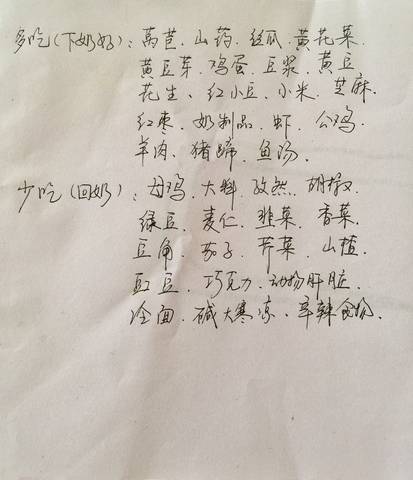 多吃(下奶好)：莴苣、山药、丝瓜、黄花菜、
黄豆芽、鸡蛋、豆浆、黄豆
花生、红小豆、小米、芝麻
红枣、奶制品、虾、公鸡
羊肉、猪蹄、鱼汤、
少吃(回奶)：母鸡、大料、孜然、胡椒、
绿豆、麦仁、韭菜、香菜、
豆角、茄子、芹菜、山楂、
豇豆、巧克力、动物肝脏、
冷面、碱大寒凉、辛辣食物、